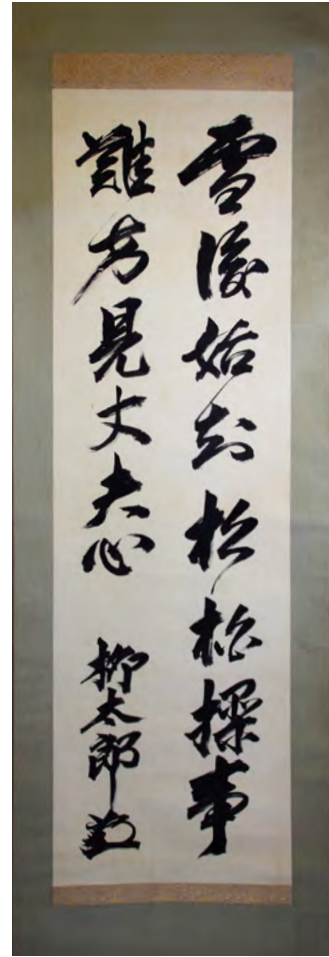 雪後始知松柏操事
難方見丈夫心 柳太郎